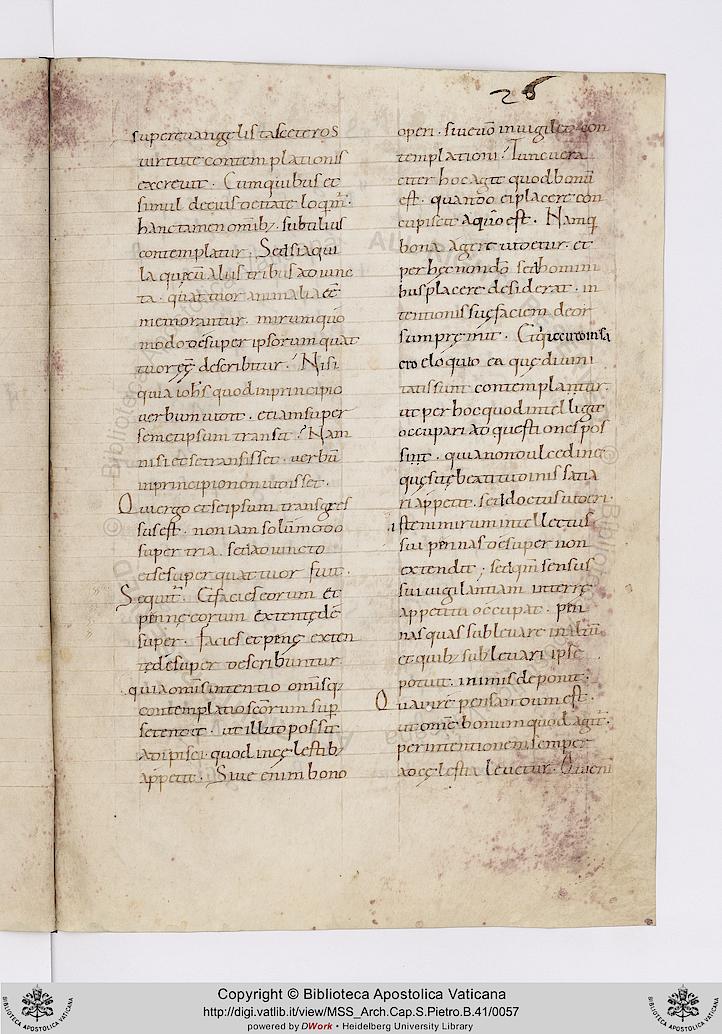 26
super evangelistas ceteros
virtute contemplationis
excrevit. Cum quibus et
simul de eius deitate loquit᷑.
hanc tamen omĩb; subtilius
contemplatur. Sed si aqui
la quę cũ aliis tribus adiunc
ta. quattuor animalia eẽ
memorantur. mirum quo
modo desuper ipsorum quat
tuor ęẽ describitur? Nisi
quia ioħs quod in principio
verbum vidit. etiam super
semetipsum transit? Nam
nisi et se transisset. verbũ
in principio non vidisset.
Qui ergo et seipsum transgres
sus est. non iam solũmodo
super tria. sed adiuncto
et se super quattuor fuit.
Sequit᷑. Et facies eorum et
pennę eorum extentę de
super. Facies et pennę exten
tę desuper describuntur
quia omnis intentio omĩsq;
contemplatio scõrum sup̃
se tendit. ut illud possit
adipisci. quod in cęlestib;
appetit. Sive enim bono
operi. sive v̊o invigilet con
templationi? Tunc vera
citer hoc agit quod bonũ
est. quando ei placere con
cupiscit a quo est. Namq;
bona agere videtur. et
per hęc non dõ. sed homini
bus placere desiderat. in
tentionis suę faciem deor
sum premit. Et qui iccirco in sa
cro eloquio ea quę divini
tatis sunt contemplantur.
ut per hoc quod intelligit
occupari ad questiones pos
sint. quia non dulcedine
quęsitę beatitudinis satia
ri appetit. sed doctus videri.
iste nimirum intellectus
sui pennas desuper non
extendit; sed qm̃ sensus
sui vigilantiam in terrę
appetitu occupat. pen
nas quas sublevare in altũ
et quib; sublevari ipse
potuit. in imis deponit?
Qua in re pensandum est.
ut omẽ bonum quod agit᷑.
per intentionem semper
ad cęlestia levetur. Qui eni
Copyright © Biblioteca Apostolica Vaticana
http://digi.vatlib.it/view/MSS_Arch.Cap.S.Pietro.B.41/0057
powered by DWork • Heidelberg University Library